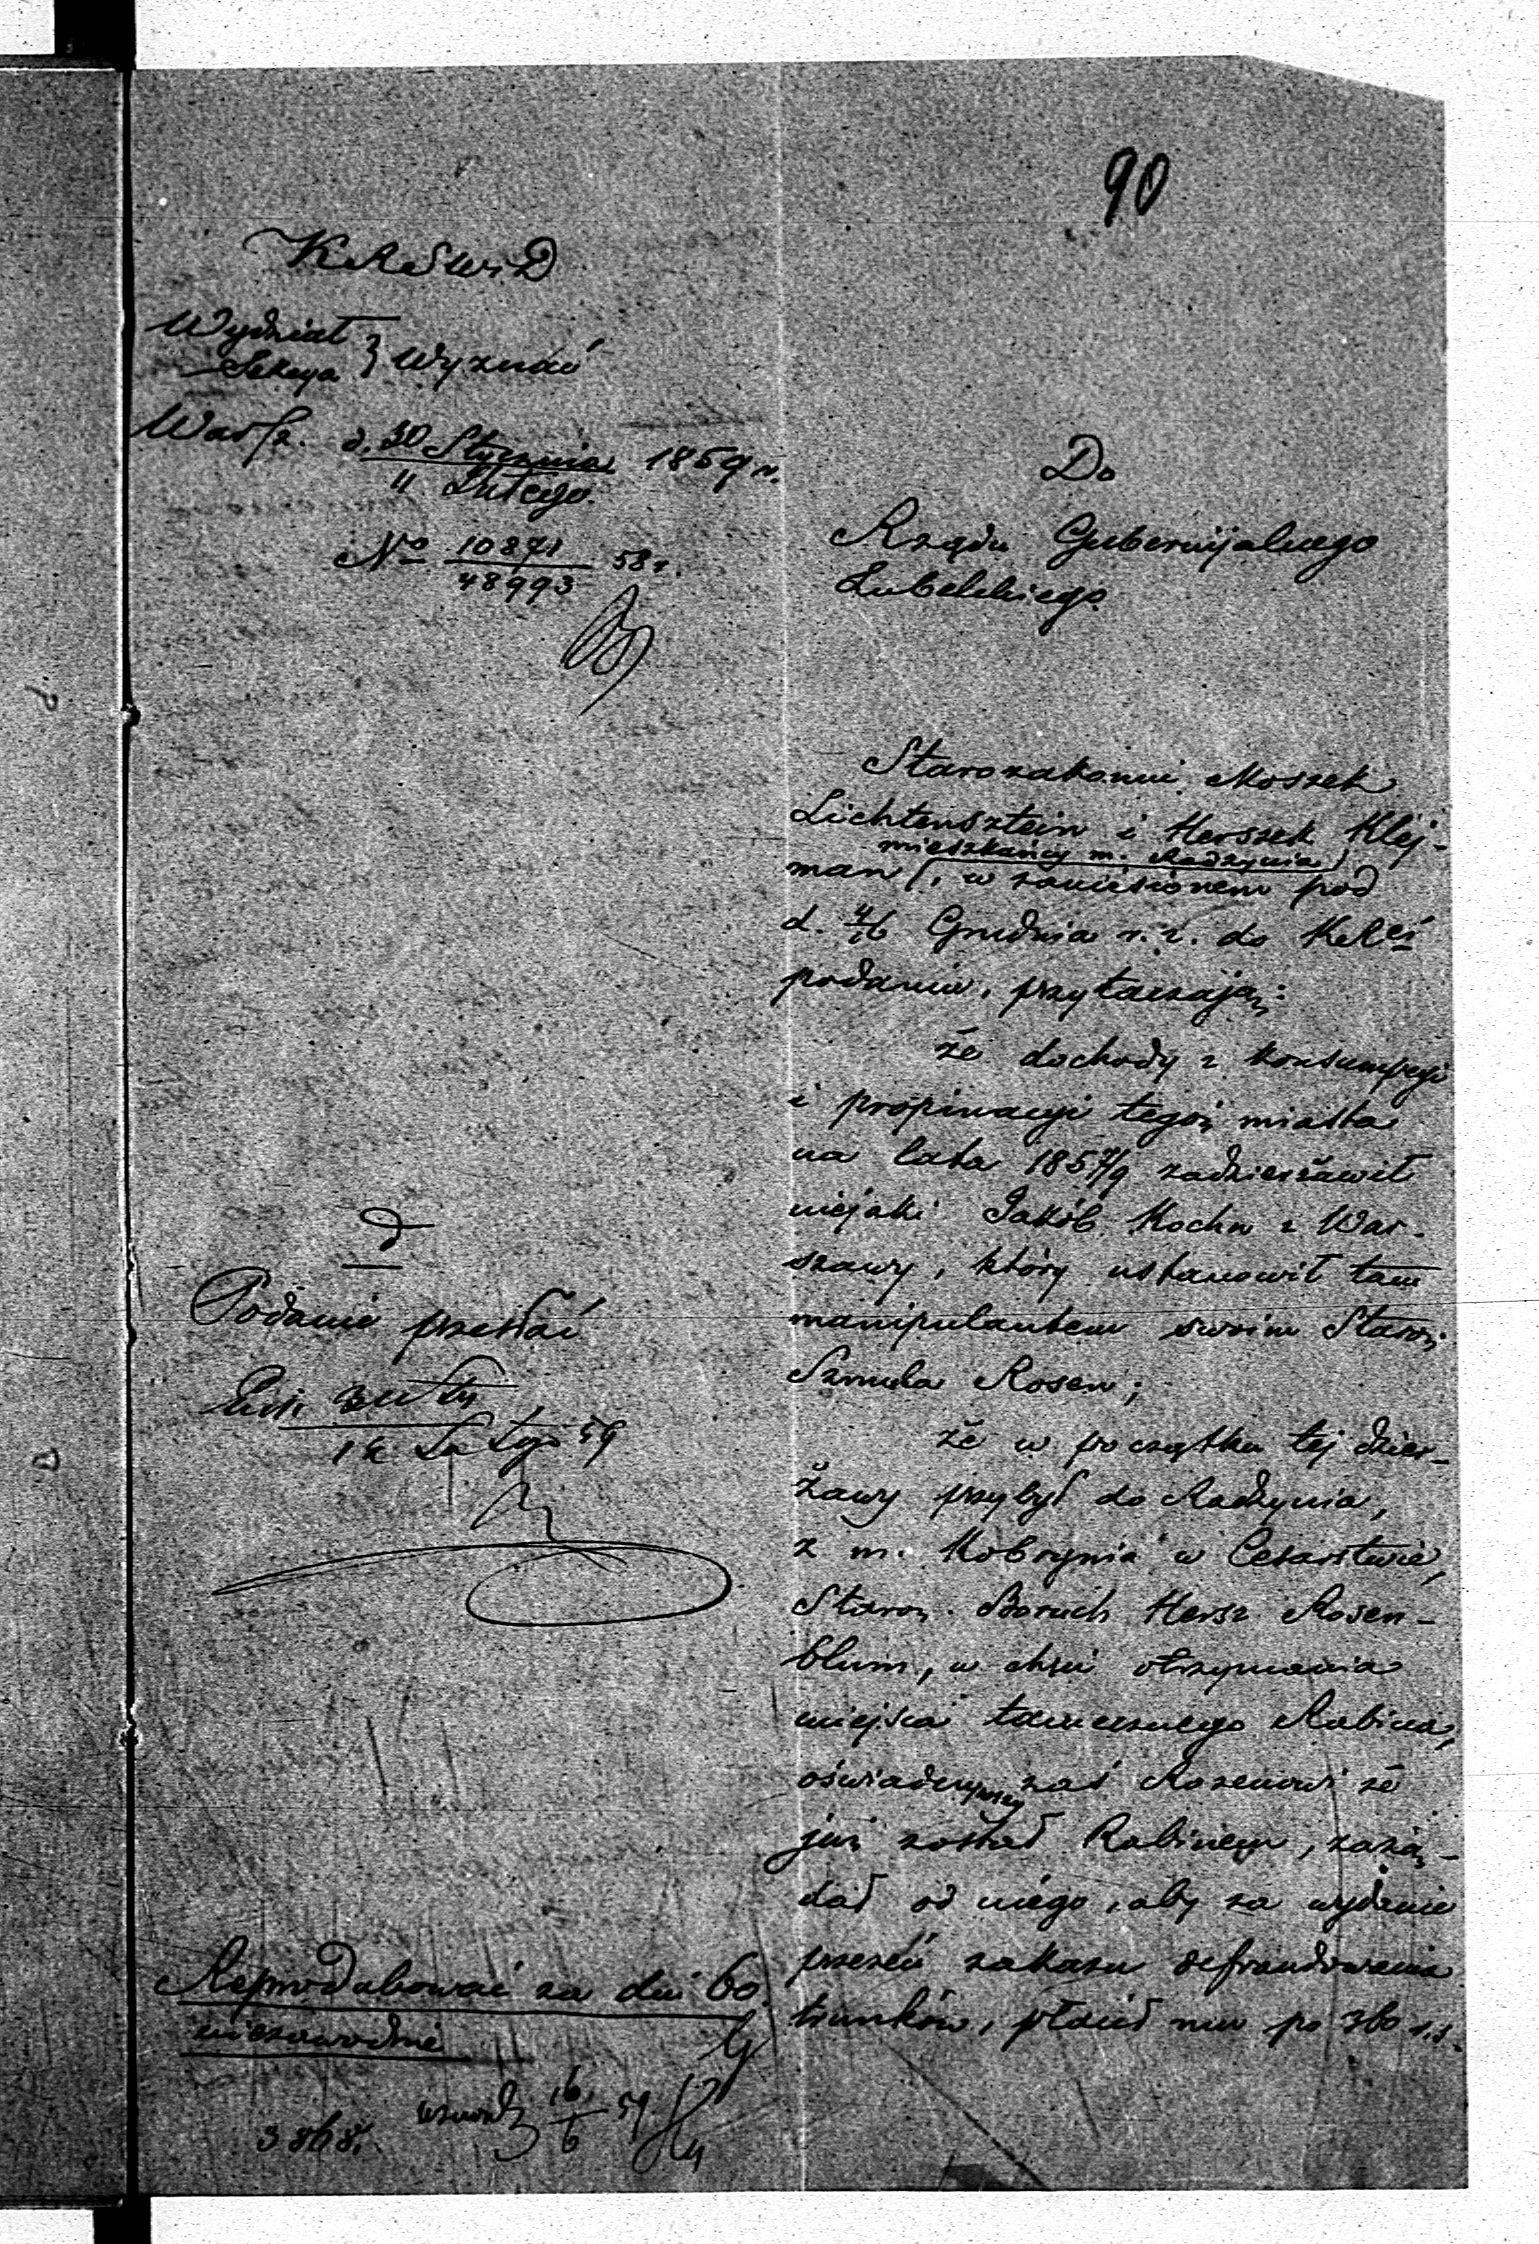 90
KRSW i D
Wydział
Sekcya } Wyznań
Warsz. d. 30 Stycznia 1859 r.
11 Lutego
No 10871 58 r.
48993
Do
Rządu Gubernijalnego
Lubelskiego
Starozakonni Moszek
Lichtensztein i Herszek Klej-
mieszkańcy m. Radzynia
man, w zaniesionem pod
d. 4/16 Grudnia r. z. do KRei
podaniu, przytaczają:
że dochody z konsumpcyi
i propinacyi tegoż miasta
na lata 1857/9 zadzierżawił
niejaki Jakób Kochn z War-
szawy, który ustanowił tam
manipulantem swoim Staroz.
Szmula Rosen;
że w początku tej dzier-
żawy przybył do Radzynia,
z m. Kobrynia w Cesarstwie,
Staroz. Boruch Hersz Rosen-
blum, w chęci otrzymania
miejsca tamecznego Rabina,
oświadczywszy zaś Rozenowi że
już został Rabinem, zażą-
dał od niego, aby za wydanie
przezeń zakazu defraudowania
trunków, płacił mu po 360 r.s.
Podanie przesłać
Lutego 59
Reprodukować za dni 60
niezawodnie
16/6 59
3868.